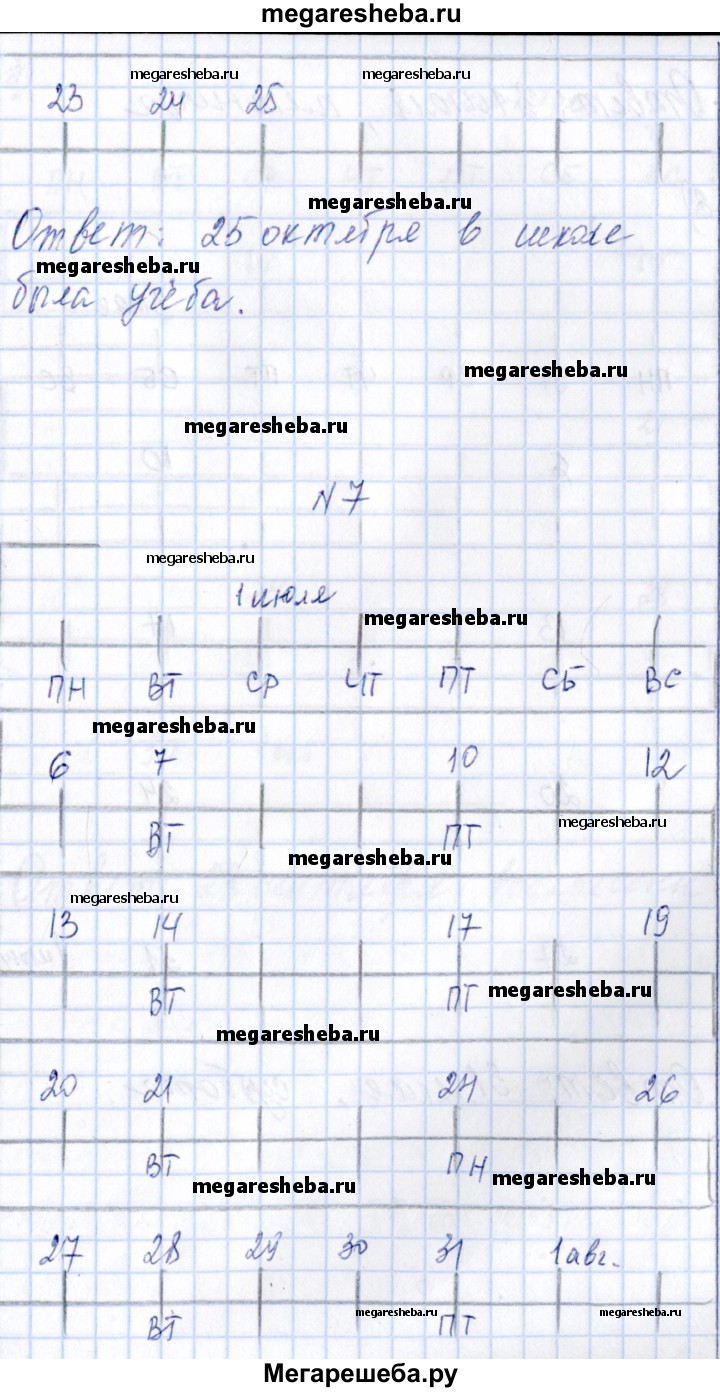 megaresheba.ru
megaresheba.ru megaresheba.ru
23 24 25
megaresheba.ru
Ответ: 25 октября в школе
megaresheba.ru
была учёба.
megaresheba.ru
megaresheba.ru
N 7
megaresheba.ru
1 июля
megaresheba.ru
ПН ВТ СР ЧТ ПТ СБ ВС
megaresheba.ru
6 7 10 12
megaresheba.ru
ВТ ПТ
megaresheba.ru
megaresheba.ru
13 14 17 19
ВТ ПТ megaresheba.ru
megaresheba.ru
20 21 24 26
ВТ ПН megaresheba.ru
megaresheba.ru
27 28 29 30 31 1 авг.
megaresheba.ru megaresheba.ru
ВТ ПТ
Мегарешеба.ру